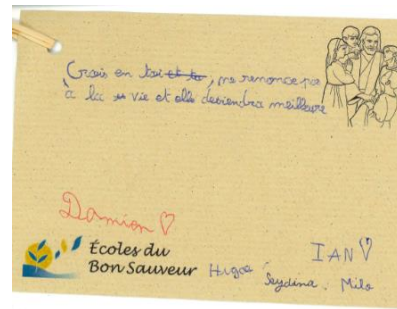 Crois en toi et ta, ne renonce pas
à la vie et elle deviendra meilleure
Damion
Écoles du
Bon Sauveur
IAN
Hugoé
Seydina. Milo